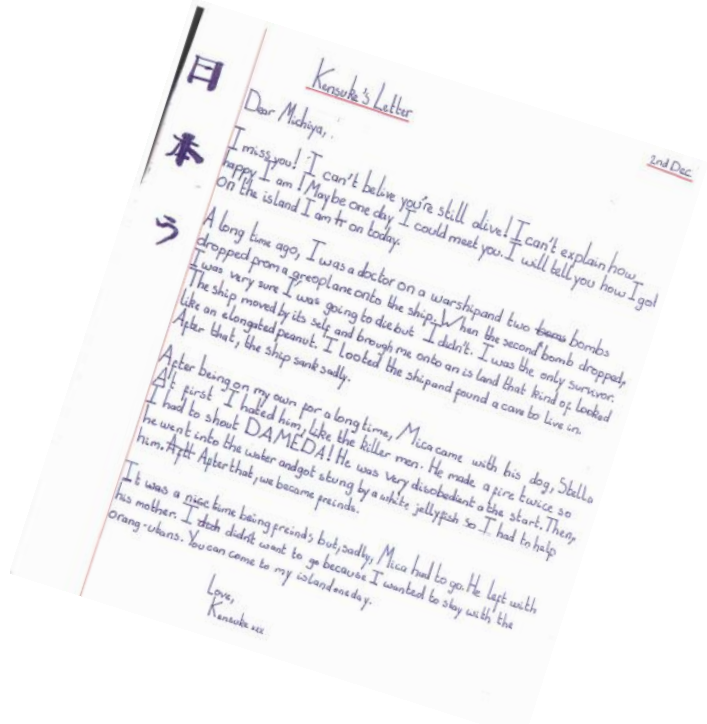 日
本
う
Kensuke's Letter
2nd Dec
Dear Michiya,
I miss you! I can't belive you're still alive! I can't explain how
happy I am! Maybe one day I could meet you. I will tell you how I got
on the island I am on today.
A long time ago, I was a doctor on a warship and two bombs
dropped from a areoplane onto the ship. When the second bomb dropped,
I was very sure I was going to die but I didn't. I was the only survivor.
The ship moved by its self and brough me onto an is land that kind of looked
like an elongated peanut. I looted the ship and found a cave to live in.
After that, the ship sank sadly.
After being on my own for a long time, Mica came with his dog, Stella
At first I hated him, like the killer men. He made a fire twice so
I had to shout DAMEDA! He was very disobedient a the start. Then,
he went into the water and got stung by a white jellyfish so I had to help
him. After that, we became freinds.
It was a nice time being freinds but, sadly, Mica had to go. He left with
his mother. I didn't want to go because I wanted to stay with the
orang-utans. You can come to my island one day.
Love,
Kensuke xxx